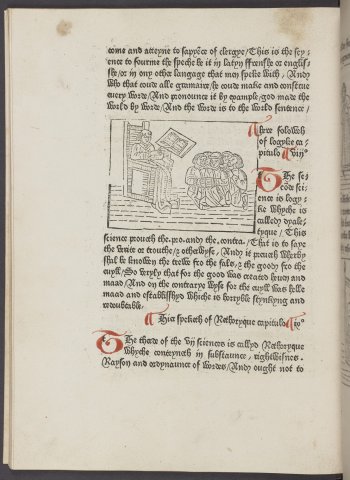 come and atteyne to sapyẽce of clergye/ This is the scy-
ence to fourme the speche be it in latyn ffrenshe or englis-
she/or in ony other langage that men speke with/ And
who that coude alle gramaire/he coude make and construe
euery worde/ And pronounce it by example/god made the
world by worde/ And the worde is to the world sentence/
Here foloweth
of logyke ca-
pitulo viijº
The se-
cõde sci-
ence is logy-
ke whyche is
called dyale-
tyque/ This
science proueth the.pro.and the.contra./ That is to saye
the verite or trouthe/& otherwyse/ And it preueth wherby
shal be knowen the trewe fro the fals/& the good fro the
euyll/So veryly that for the good was created heuen and
maad/ And on the contrarye wyse for the euyll was helle
maad and establisshyd whiche is horryble stynkyng and
redoubtable.
Hier speketh of Rethoryque capitulo ixº
The thirde of the vij sciences is callyd Rethoryque
whyche conteyneth in substaunce, rightwisnes.
Rayson and ordynaunce of wordes/And ought not to